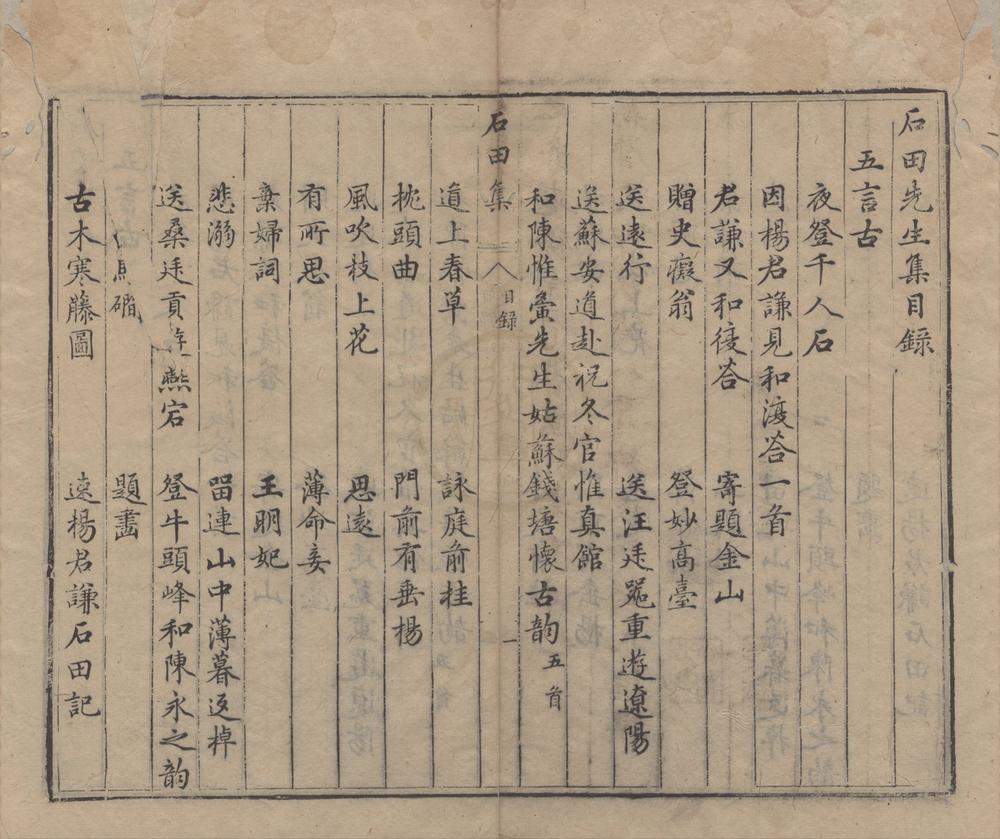 石田先生集目錄
五言古
夜登千人石
因楊君謙見和復答一首
君謙又和復荅 寄題金山
贈史癡翁 登妙高臺
送遠行 送汪廷器重遊遼陽
送蘇安道赴祝冬官惟真館
和陳惟夤先生姑蘇錢塘懷古韵五首
石田集 目錄 一
道上春草 詠庭前桂
枕頭曲 門前有垂楊
風吹枝上花 思遠
有所思 薄命妾
棄婦詞 王明妃
悲溺 留連山中薄暮返棹
送桑廷貢 燕宕 登牛頭峰和陳永之韵
題畫
古木寒藤圖 速楊君謙石田記